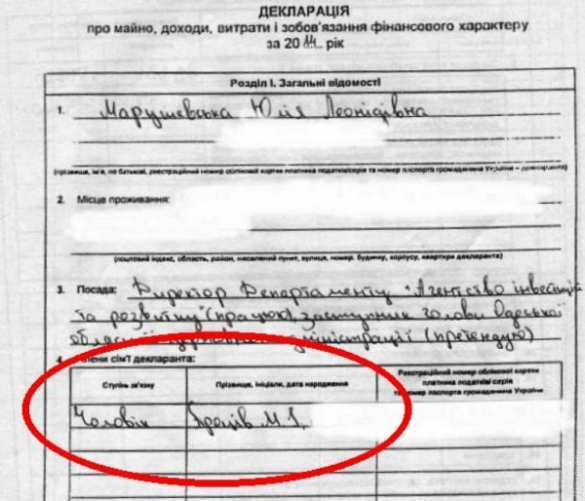 ДЕКЛАРАЦІЯ
про майно, доходи, витрати і зобов'язання фінансового характеру
за 20 14 рік
Розділ I. Загальні відомості
1. Марушевська Юлія Леонідівна
(прізвище, ім'я, по батькові, реєстраційний номер облікової картки платника податків/серія та номер паспорта громадянина України – декларанта)
2. Місце проживання:
(поштовий індекс, область, район, населений пункт, вулиця, номер будинку, корпусу, квартири декларанта)
3. Посада: Директор Департаменту "Агентство інвестицій
та розвитку" (працюю), заступник голови Одеської
обласної державної адміністрації (претендую)
4. Члени сім'ї декларанта:
Ступінь зв'язку
Прізвище, ініціали, дата народження
Реєстраційний номер облікової картки
платника податків/серія
та номер паспорта громадянина України
Чоловік
М.І.